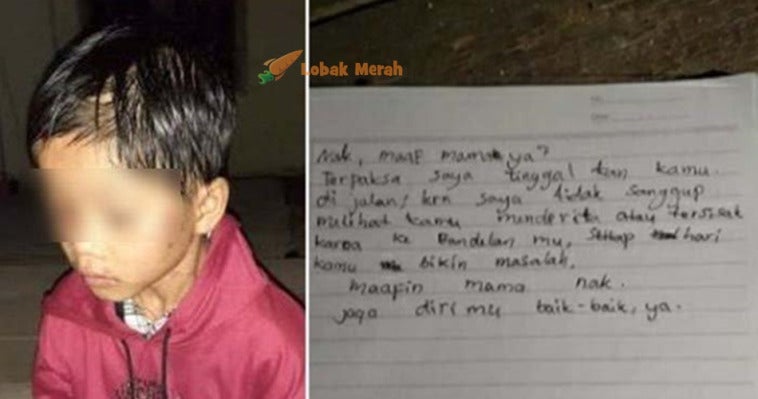 Lobak Merah
Nak, maap mama ya?
Terpaksa saya tinggal kan kamu.
di jalan, krn saya tidak sanggup
mulihat kamu minderita atau tersisak
karna ke Bandelan mu, setiap hari
kamu bikin masalah.
maapin mama nak.
jaga diri mu baik-baik, ya.